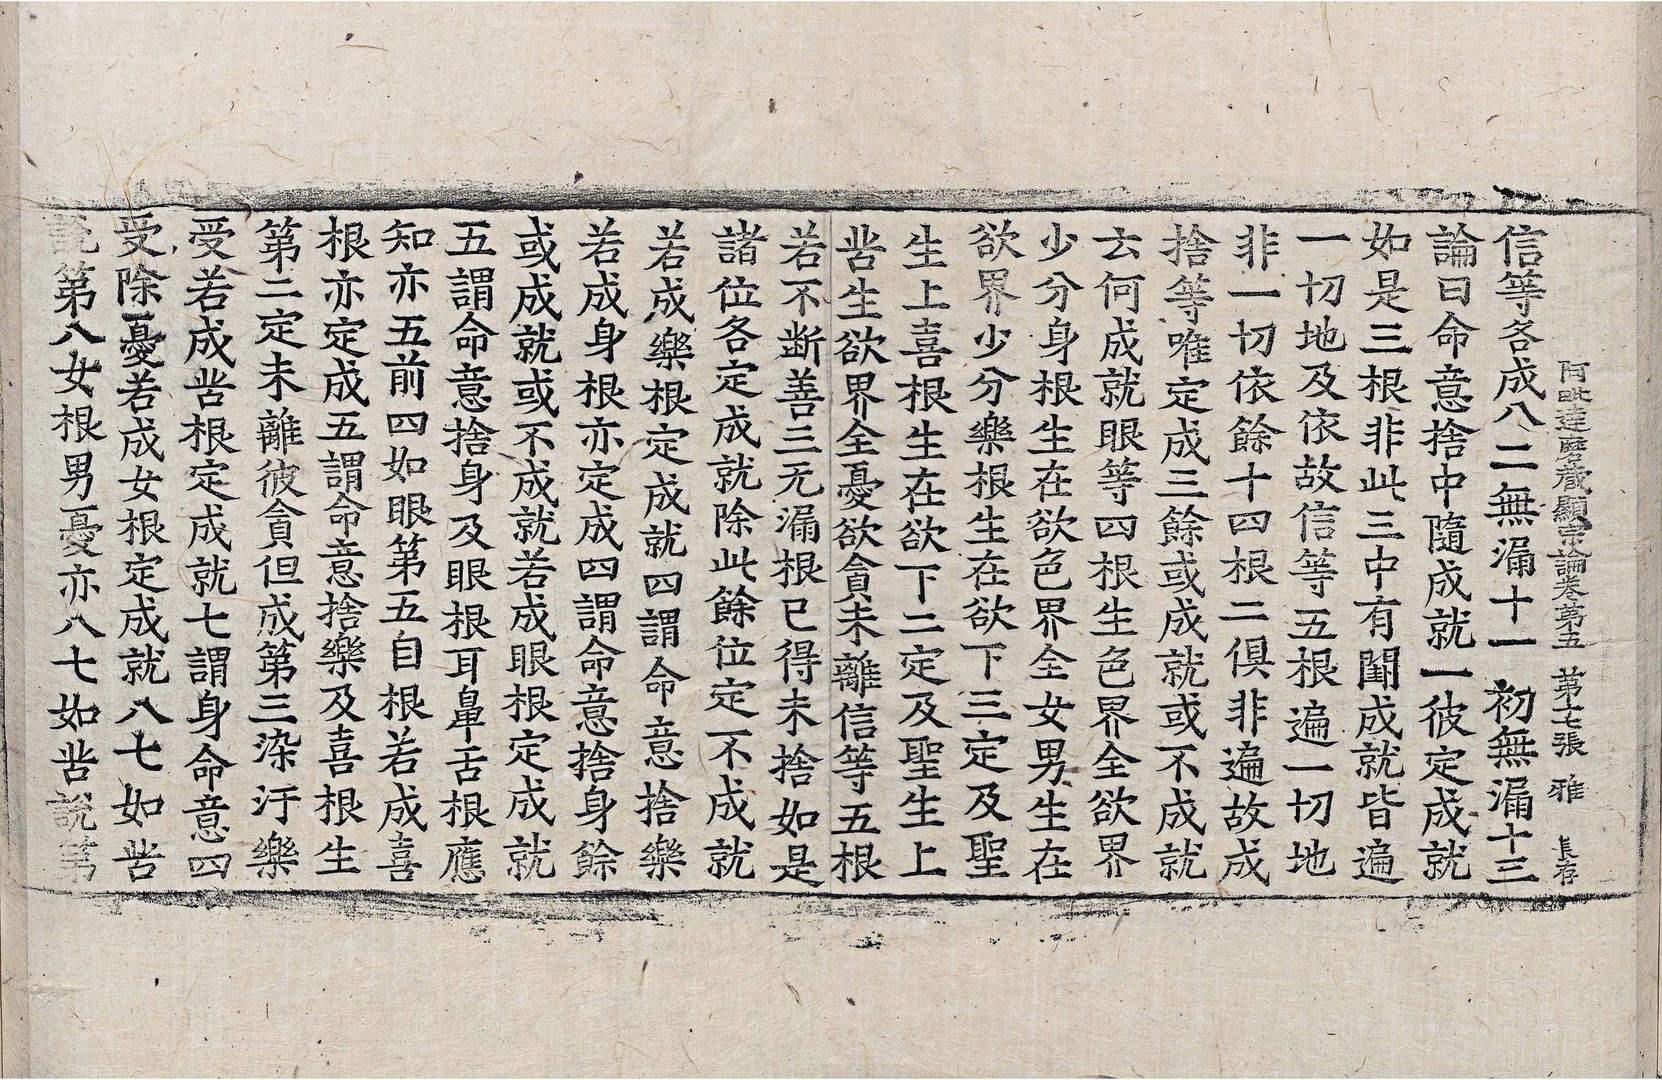 阿毗達磨藏顯宗論卷第五 第十七張 雅 長存
信等各成八二無漏十一 初無漏十三
論曰命意捨中隨成就一彼定成就
如是三根非此三中有闕成就皆遍
一切地及依故信等五根遍一切地
非一切依餘十四根二俱非遍故成
捨等唯定成三餘或成就或不成就
云何成就眼等四根生色界全欲界
少分身根生在欲色界全女男生在
欲界少分樂根生在欲下三定及聖
生上喜根生在欲下二定及聖生上
苦生欲界全憂欲貪未離信等五根
若不断善三无漏根已得未捨如是
諸位各定成就除此餘位定不成就
若成樂根定成就四謂命意捨樂
若成身根亦定成四謂命意捨身餘
或成就或不成就若成眼根定成就
五謂命意捨身及眼根耳鼻舌根應
知亦五前四如眼第五自根若成喜
根亦定成五謂命意捨樂及喜根生
第二定未離彼貪但成第三染汙樂
受若成苦根定成就七謂身命意四
受除憂若成女根定成就八七如苦
說第八女根男憂亦八七如苦說第